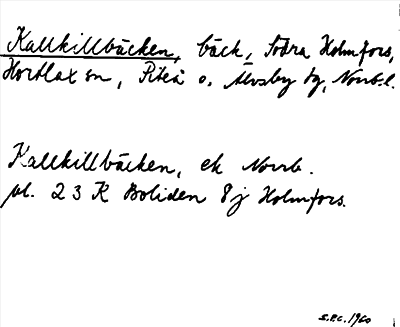 Kallkillbäcken, bäck, Södra Holmfors,
Hortlax sn, Piteå o. Älvsby tg, Norrb.l.
Kallkillbäcken, ek Norrb.
bl. 23 K Boliden 8j Holmfors.
S.P.C. 1960